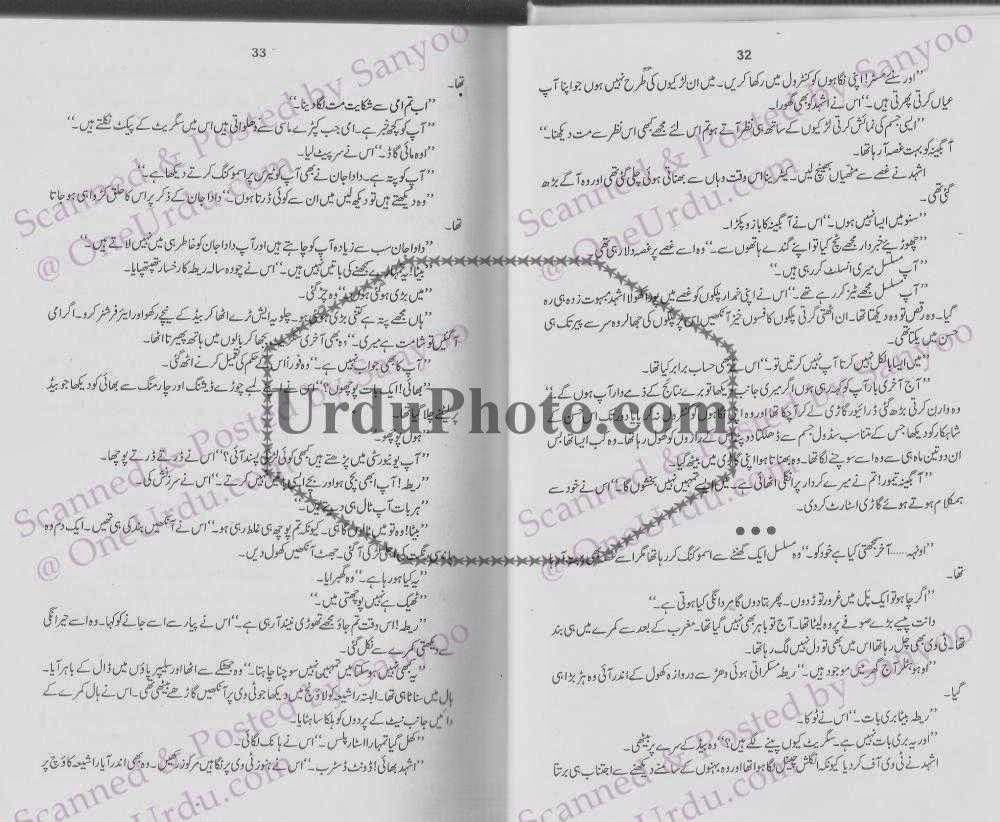 32
”اور سنئے مسٹر! اپنی نگاہوں کو کنٹرول میں رکھا کریں۔ میں ان لڑکیوں کی طرح نہیں ہوں جو اپنا آپ
عیاں کرتی پھرتی ہیں۔“ اس نے اشہد کو بھی گھورا۔
”ایسی جسم کی نمائش کرتی لڑکیوں کے ساتھ ہی نظر آتے ہو تم اس لئے مجھے کبھی اس نظر سے مت دیکھنا۔“
آبگینہ کو بہت غصہ آ رہا تھا۔
اشہد نے غصے سے مٹھیاں بھینچ لیں۔ کیٹرینا اس وقت وہاں سے بھناتی ہوئی چلی گئی تھی اور وہ آگے بڑھ
گئی تھی۔
”سنو میں ایسا نہیں ہوں۔“ اس نے آبگینہ کا بازو پکڑا۔
”چھوڑیئے خبردار مجھے ٹچ کیا تو اپنے گندے ہاتھوں سے۔“ وہ اسے غصے پر غصہ دلا رہی تھی۔
”آپ مسلسل میری انسلٹ کر رہی ہیں۔“
”آپ مسلسل مجھے ٹیز کر رہے تھے۔“ اس نے اپنی خمدار پلکوں کو غصے میں پورا کھولا اشہد مبہوت زدہ ہی رہ
گیا۔ وہ رقص تو وہ دیکھتا تھا۔ ان اٹھتی گرتی پلکوں کا فسوں خیز آنکھیں اس پر پلکوں کی جھالر وہ سر سے پیر تک ہی
حسن میں یکتا تھی۔
”میں ایسا بالکل نہیں کرتا آپ نہیں کرتیں تو۔“ اس نے بھی حساب برابر کیا تھا۔
”آج آخری بار آپ کو کہہ رہی ہوں اگر میری جانب دیکھا تو برے نتائج کے ذمے دار آپ ہوں گے۔“
وہ وارن کرتی بڑھ گئی ڈرائیور گاڑی لے کر آ چکا تھا اور وہ اپنی نگاہوں کو کنٹرول نہ کر پایا دور تک اس حسن کے
شاہکار کو دیکھا جس کے متناسب سڈول جسم سے ڈھلکتا دوپٹہ اس کے رازوں کو کھول رہا تھا۔ وہ کب ایسا تھا بس
ان دو تین ماہ ہی سے وہ اسے سوچنے لگا تھا۔ وہ بھناتا ہوا اپنی گاڑی میں بیٹھ گیا۔
”آبگینہ تیمور! تم نے میرے کردار پر انگلی اٹھائی ہے۔ میں ایسے تمہیں نہیں بخشوں گا۔“ اس نے خود سے
ہمکلام ہوتے ہوئے گاڑی اسٹارٹ کر دی۔
●●●
”اونہہ..... آخر سمجھتی کیا ہے خود کو۔“ وہ مسلسل ایک گھنٹے سے اسموکنگ کر رہا تھا مگر اسے
تھا۔
”اگر چاہو تو ایک پل میں غرور توڑ دوں۔ پھر بتا دوں گا مردانگی کیا ہوتی ہے۔“
دانت پیسے بڑے صوفے پر وہ لیٹا تھا۔ آج تو باہر بھی نہیں گیا تھا۔ مغرب کے بعد سے کمرے میں ہی بند
تھا۔ ٹی وی بھی چل رہا تھا اس میں بھی تو دل نہیں لگ رہا تھا۔
”اوہو ہٹلر آج گھر میں موجود ہیں۔“ ربطہ مسکراتی ہوئی دھڑ سے دروازہ کھول کے اندر آئی وہ ہڑبڑا ہی
گیا۔
”ربطہ بیٹا بری بات۔“ اس نے ٹوکا۔
”اور یہ بری بات نہیں ہے۔ سگریٹ کیوں پینے لگے ہیں؟“ وہ بیڈ کے سرے پر بیٹھی۔
اشہد نے ٹی وی آف کر دیا کیونکہ انگلش چینل لگا ہوا تھا اور وہ بہنوں کے سامنے دیکھنے سے اجتناب ہی برتتا
33
تھا۔
”اب تم امی سے شکایت مت لگا دینا۔“
”آپ کو کچھ خبر ہے۔ امی جب کپڑے ماسی سے دھلواتی ہیں اس میں سگریٹ کے پیکٹ نکلتے ہیں۔“
”اوہ مائی گاڈ۔“ اس نے سر پیٹ لیا۔
”آپ کو پتہ ہے۔ دادا جان نے بھی آپ کو ٹیرس پر اسموکنگ کرتے دیکھا ہے۔“
”وہ دیکھتے ہیں تو دیکھ لیں میں ان سے کوئی ڈرتا ہوں۔“ دادا جان کے ذکر پر اس کا حلق کڑوا ہی ہو جاتا
تھا۔
”دادا جان سب سے زیادہ آپ کو چاہتے ہیں اور آپ دادا جان کو خاطر ہی میں نہیں لاتے ہیں۔“
”بیٹا! یہ تمہارے سمجھنے کی باتیں نہیں ہیں۔“ اس نے چودہ سالہ ربطہ کا رخسار تھپتھپایا۔
”میں بڑی ہو گئی ہوں۔“ وہ چڑ گئی۔
”ہاں مجھے پتہ ہے کتنی بڑی ہو گئی ہو۔ چلو یہ ایش ٹرے اٹھا کر بیڈ کے نیچے رکھو اور ایئر فریشنر کرو۔ اگر امی
آ گئیں تو شامت ہے میری۔“ وہ بھی آخری بجھا کر بالوں میں ہاتھ پھیرتا اٹھا۔
”آپ کا بھی جواب نہیں ہے۔“ وہ فوراً اس کے حکم کی تعمیل کرنے اٹھ گئی۔
”بھائی! ایک بات پوچھوں؟“ اس نے اپنے لمبے چوڑے ڈیشنگ اور چارمنگ سے بھائی کو دیکھا جو بیڈ
پہ لیٹنے چلا گیا تھا۔
”ہوں پوچھو۔“
”آپ یونیورسٹی میں پڑھتے ہیں کبھی کوئی لڑکی پسند آئی؟“ اس نے ڈرتے ڈرتے پوچھا۔
”ربطہ! آپ ابھی بچی ہو اور بچے ایسی باتیں نہیں کرتے۔“ اس نے سرزنش کی۔
”ہر بات آپ ٹال ہی دیتے ہیں۔“
”بیٹا! وہ تو میں ٹالوں گا ہی۔ کیونکہ تم پوچھ ہی غلط رہی ہو۔“ اس نے آنکھیں بند کی ہی تھیں۔ ایک دم وہ
لڑکی آ گئی۔ جھٹ آنکھیں کھول دیں۔
”یہ کیا ہو رہا ہے۔“ وہ گھبرایا۔
”ٹھیک ہے نہیں پوچھتی میں۔“
”ربطہ! اس وقت تم جاؤ مجھے تھوڑی نیند آ رہی ہے۔“ اس نے پیار سے اسے جانے کو کہا۔ وہ اسے حیرانگی
سے دیکھتی کمرے سے نکل گئی۔
”یہ کبھی نہیں ہو سکتا میں تمہیں نہیں سوچنا چاہتا۔“ وہ جھٹکے سے اٹھا اور سلیپر پاؤں میں ڈال کے باہر آیا۔
ہال میں سناٹا ہی تھا۔ البتہ راشیعہ کو لاؤنج میں دیکھا جو ٹی وی پر آنکھیں گاڑھے بیٹھی تھی۔ اس نے ہال کمرے کے
دائیں جانب نیٹ کے پردوں کو ہلکا سا ہٹایا۔
”کھل گیا تمہارا اسٹار پلس۔“ اس نے ہانک لگائی۔
”اشہد بھائی! ڈونٹ ڈسٹرب۔“ اس نے ہنوز ٹی وی پر نگاہیں مرکوز رکھیں۔ وہ بھی اندر آیا راشیعہ کاؤچ پر
UrduPhoto.com
Scanned & Posted by Sanyoo
@ OneUrdu.com